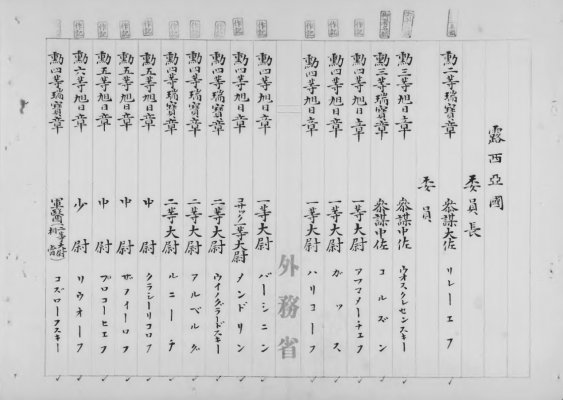 露西亜國
委員長
勲二等瑞寶章 参謀大佐 リレーエフ
委員
勲三等旭日章 参謀中佐 ウオスクレセンスキー
勲三等瑞寶章 参謀中佐 コルズン
勲四等旭日章 一等大尉 アフマメーチエフ
勲四等旭日章 一等大尉 ガツス
勲四等旭日章 一等大尉 ハリコーフ
外務省
勲四等旭日章 一等大尉 バーシニン
勲四等旭日章 コサック一等大尉 メンドリン
勲四等瑞寶章 二等大尉 ウイノグラードスキー
勲四等瑞寶章 二等大尉 アルベルグ
勲四等瑞寶章 二等大尉 ルニーチ
勲五等旭日章 中尉 クラシーリコロフ
勲五等旭日章 中尉 ザフイーロフ
勲五等旭日章 中尉 プロコーヒエフ
勲六等旭日章 少尉 リウオーフ
勲四等瑞寶章 軍醫 コズローフスキー